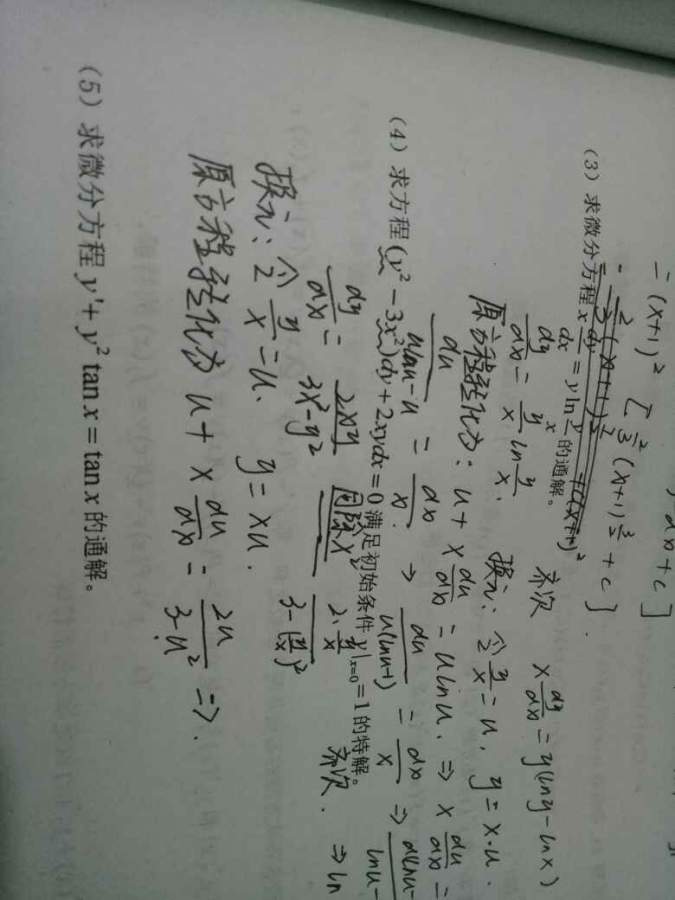 dx + c ]
= (x+1)² [ 2/3 (x+1)^(3/2) + c ].
(3) 求微分方程 x dy/dx = y ln y/x 的通解。
dy/dx = y/x ln y/x. 齐次 x dy/dx = y(lny - lnx)
换元: 令 y/x = u, y = x·u.
原方程转化为: u + x du/dx = u ln u. ⇒ x du/dx =
du/(u ln u - u) = dx/x. ⇒ du/(u(lnu-1)) = dx/x ⇒
(4) 求方程 (y² - 3x²)dy + 2xydx = 0 满足初始条件 y|x=0 = 1 的特解。 ⇒ ln
dy/dx = 2xy/(3x²-y²) 同除x² 2·y/x / (3-(y/x)²) 齐次.
换元: 令 y/x = u. y = xu.
原方程转化为 u + x du/dx = 2u/(3-u²) ⇒.
(5) 求微分方程 y′ + y² tan x = tan x 的通解。